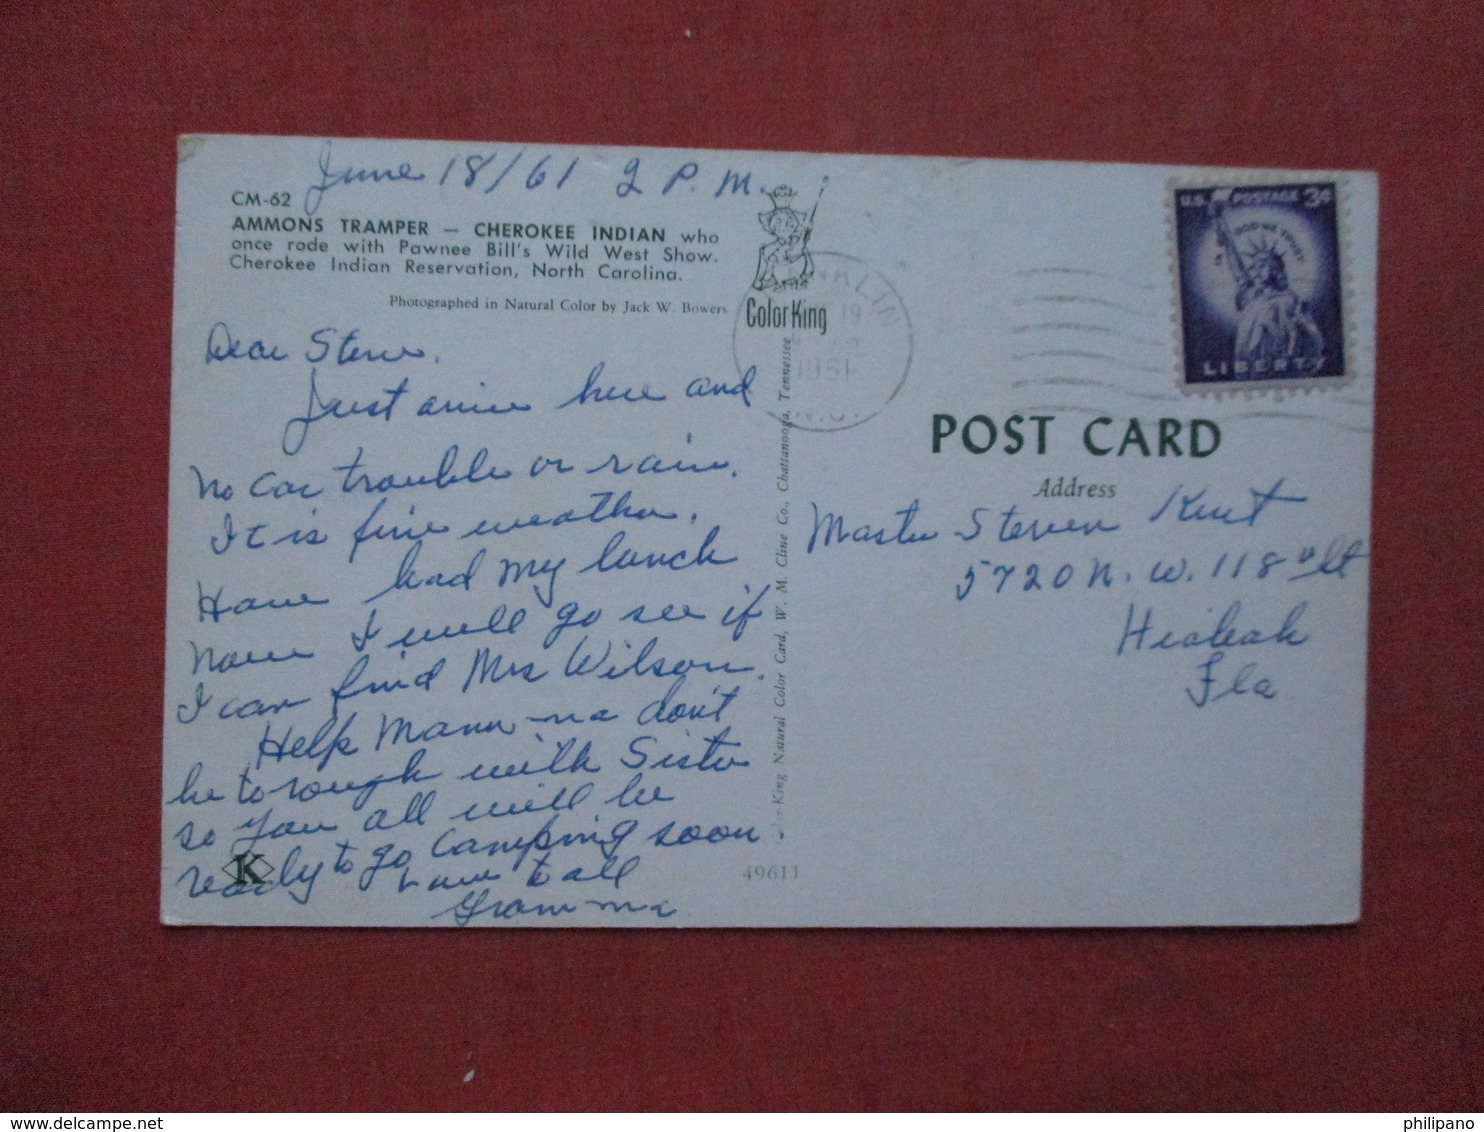 June 18/61 2 P.M.
CM-62
AMMONS TRAMPER — CHEROKEE INDIAN who
once rode with Pawnee Bill's Wild West Show.
Cherokee Indian Reservation, North Carolina.
Photographed in Natural Color by Jack W. Bowers
Dear Steve.
Just arive here and
no car trouble or rain.
It is fine weather.
Have had my lunch
now I will go see if
I can find Mrs Wilson.
Help Mamma don't
be to rough with Sister
so you all will be
ready to go camping soon
Love to all
Gramma
K
Color King
King Natural Color Card, W. M. Cline Co., Chattanooga, Tennessee
49611
FRANKLIN
19
1961
N.C.
U.S. POSTAGE 3¢
IN GOD WE TRUST
LIBERTY
POST CARD
Address
Master Steven Kent
5720 N. W. 118 st
Hialeah
Fla
philipano